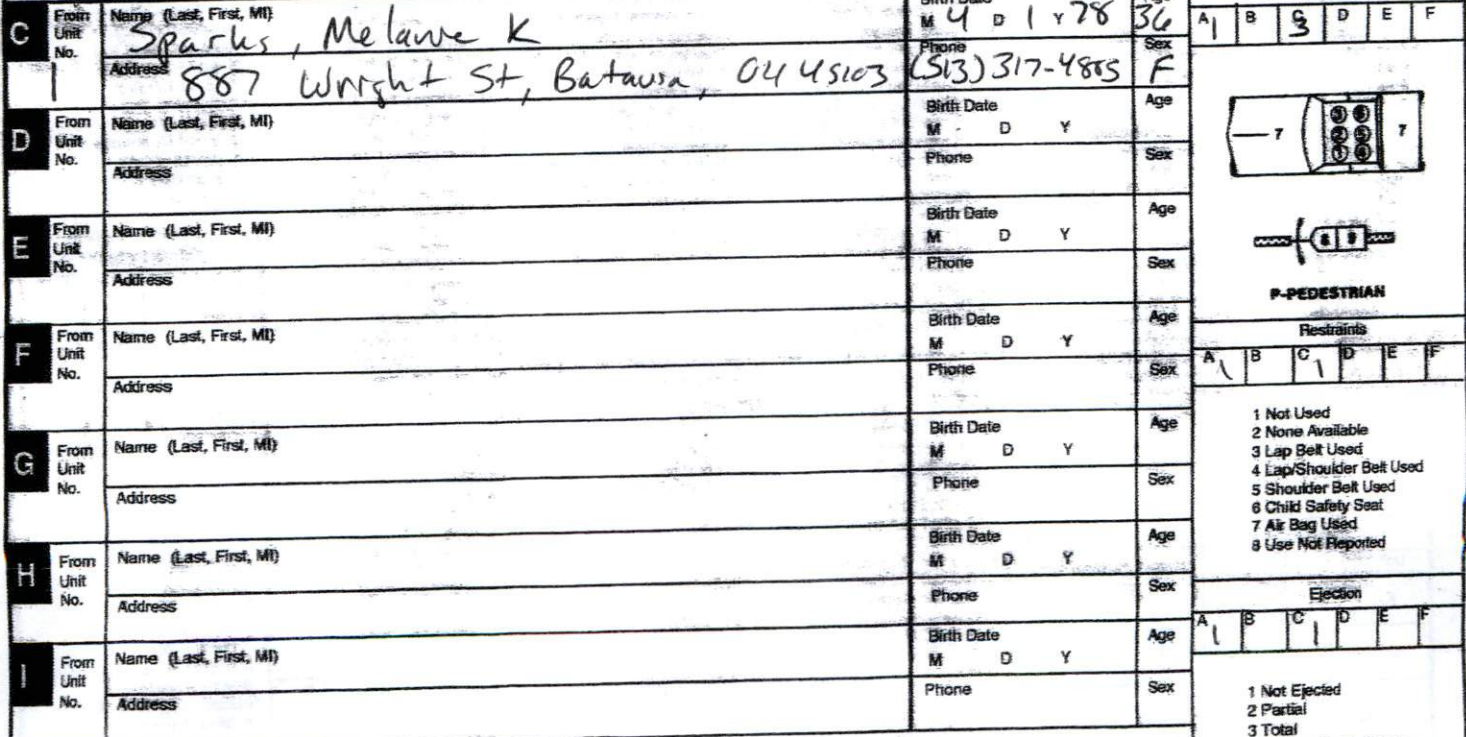 C From Unit No. 1 Name (Last, First, MI) Sparks, Melanie K Birth Date M 4 D 1 Y 78 36
Address 887 Wright St, Batavia, OH 45103 Phone (513) 317-4885 Sex F
D From Unit No. Name (Last, First, MI) Birth Date M D Y Age
Address Phone Sex
E From Unit No. Name (Last, First, MI) Birth Date M D Y Age
Address Phone Sex
F From Unit No. Name (Last, First, MI) Birth Date M D Y Age
Address Phone Sex
G From Unit No. Name (Last, First, MI) Birth Date M D Y Age
Address Phone Sex
H From Unit No. Name (Last, First, MI) Birth Date M D Y Age
Address Phone Sex
I From Unit No. Name (Last, First, MI) Birth Date M D Y Age
Address Phone Sex
A 1 B C 3 D E F
7 3 6 2 5 1 4 7
8 9
P-PEDESTRIAN
Restraints
A 1 B C 1 D E F
1 Not Used
2 None Available
3 Lap Belt Used
4 Lap/Shoulder Belt Used
5 Shoulder Belt Used
6 Child Safety Seat
7 Air Bag Used
8 Use Not Reported
Ejection
A 1 B C 1 D E F
1 Not Ejected
2 Partial
3 Total